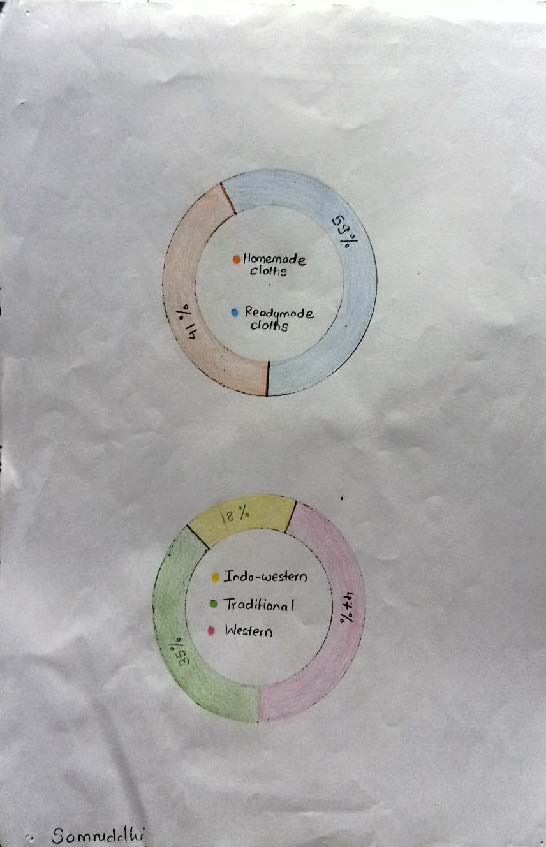 59%
Homemade
cloths
Readymade
cloths
41%
18%
Indo-western
Traditional
Western
47%
35%
Samruddhi